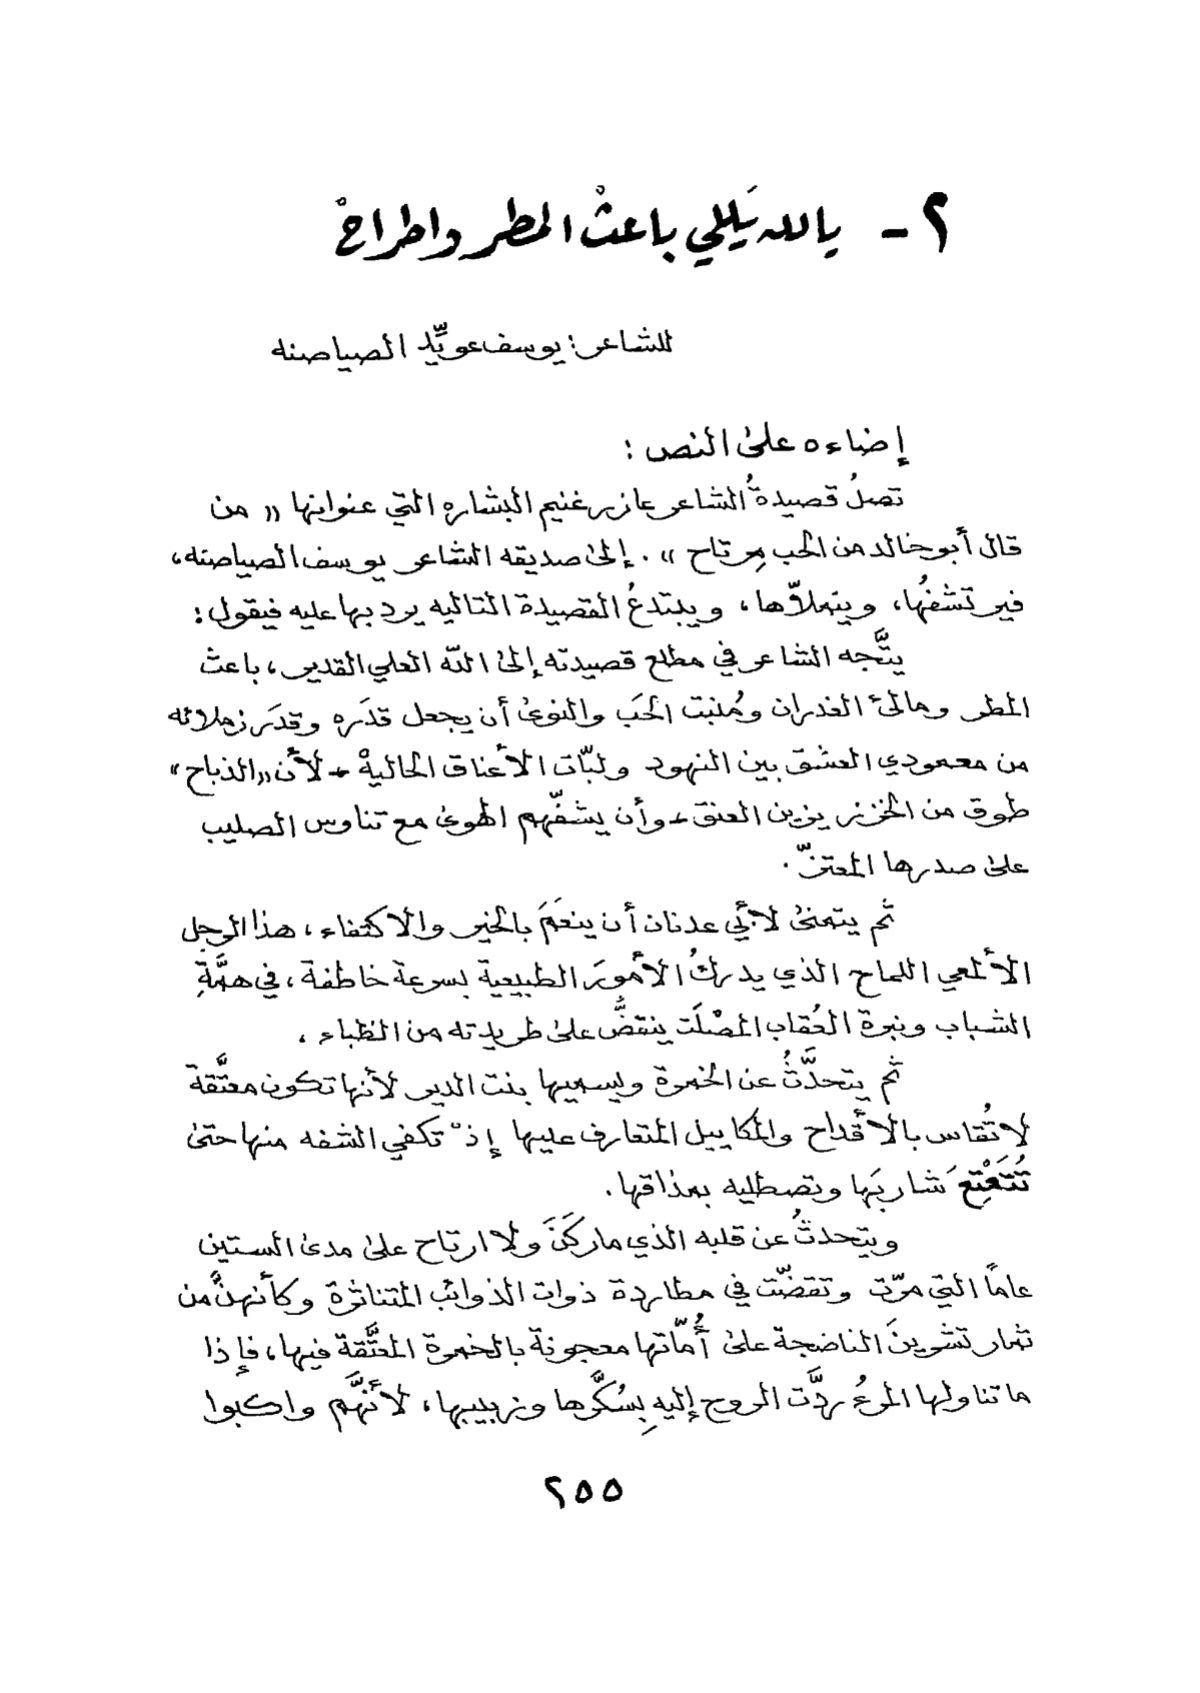 ٢ - يالله يَللي باعثْ المطر واطراحْ
للشاعر: يوسف عويِّد الصياصنه
إضاءه على النص :
تصلُ قصيدةُ الشاعر عازر غنيم البشاره التي عنوانها « من
قال أبو خالد من الحب مِرتاح » . إلى صديقه الشاعر يوسف الصياصنه،
فيرتشفُها، ويتملاّها، ويبتدعُ القصيدة التاليه يرد بها عليه فيقول:
يتَّجه الشاعر في مطلع قصيدته إلى الله العلي القدير، باعث
المطر ومالئ الغدران ومُنبت الحَب والنوى أن يجعل قدَره وقدَر زملائه
من معمودي العشق بين النهود ولبّات الأعناق الحاليهْ - لأن «الذباح»
طوق من الخرز يزين العنق - وأن يشفّهم الهوى مع تناوس الصليب
على صدرها المعتزّ.
ثم يتمنى لأبي عدنان أن ينعَمَ بالخير والاكتفاء، هذا الرجل
الألمعي اللماح الذي يدركُ الأمورَ الطبيعية بسرعة خاطفة، في همَّةِ
الشباب ونبرة العُقاب المصْلَت ينقضُّ على طريدته من الظباء .
ثم يتحدَّثُ عن الخمرة ويسميها بنت الدير لأنها تكون معتَّقة
لا تُقاس بالأقداح والمكاييل المتعارف عليها إذْ تكفي الشفه منها حتى
تُتَعْتِعَ شاربَها وتصطليه بمذاقها.
ويتحدثُ عن قلبه الذي ما ركَنَ ولا ارتاح على مدى الستين
عاماً التي مرّت وتقضّت في مطاردة ذوات الذوائب المتناثرة وكأنهنَّ من
ثمار تشرينَ الناضجة على أُمّاتها معجونة بالخمرة المعتَّقة فيها، فإذا
ما تناولها المرءُ ردَّت الروح إليه بِسُكَّرها وزبيبها، لأنهَّم واكبوا
٢٥٥